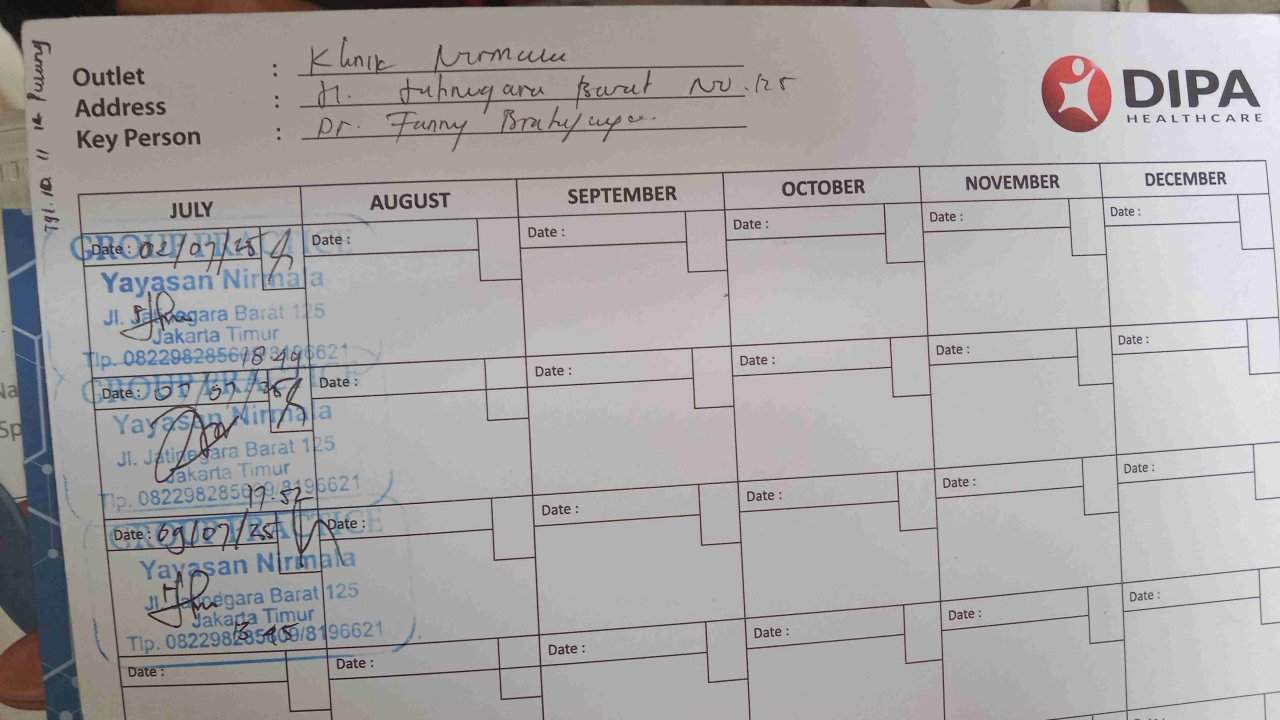 Outlet : Klinik Nirmala
Address : Jl. Jatinegara Barat No. 125
Key Person : Dr. Fanny
DIPA
HEALTHCARE
Tgl. 10 11 12
JULY AUGUST SEPTEMBER OCTOBER NOVEMBER DECEMBER
Date : 02/07/25 Date : Date : Date : Date : Date :
GROUP PRACTICE
Yayasan Nirmala
Jl. Jatinegara Barat 125
Jakarta Timur
Tlp. 082298285609/8196621
18.49
Date : 07/07/25 Date : Date : Date : Date : Date :
GROUP PRACTICE
Yayasan Nirmala
Jl. Jatinegara Barat 125
Jakarta Timur
Tlp. 082298285609/8196621
17:52
Date : 09/07/25 Date : Date : Date : Date : Date :
GROUP PRACTICE
Yayasan Nirmala
Jl. Jatinegara Barat 125
Jakarta Timur
Tlp. 082298285609/8196621
Date : Date : Date : Date : Date : Date :